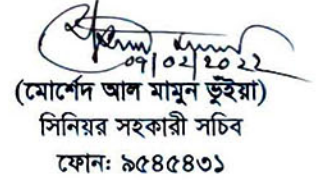 09/02/2022
(মোর্শেদ আল মামুন ভূঁইয়া)
সিনিয়র সহকারী সচিব
ফোনঃ ৯৫৪৫৪৩১